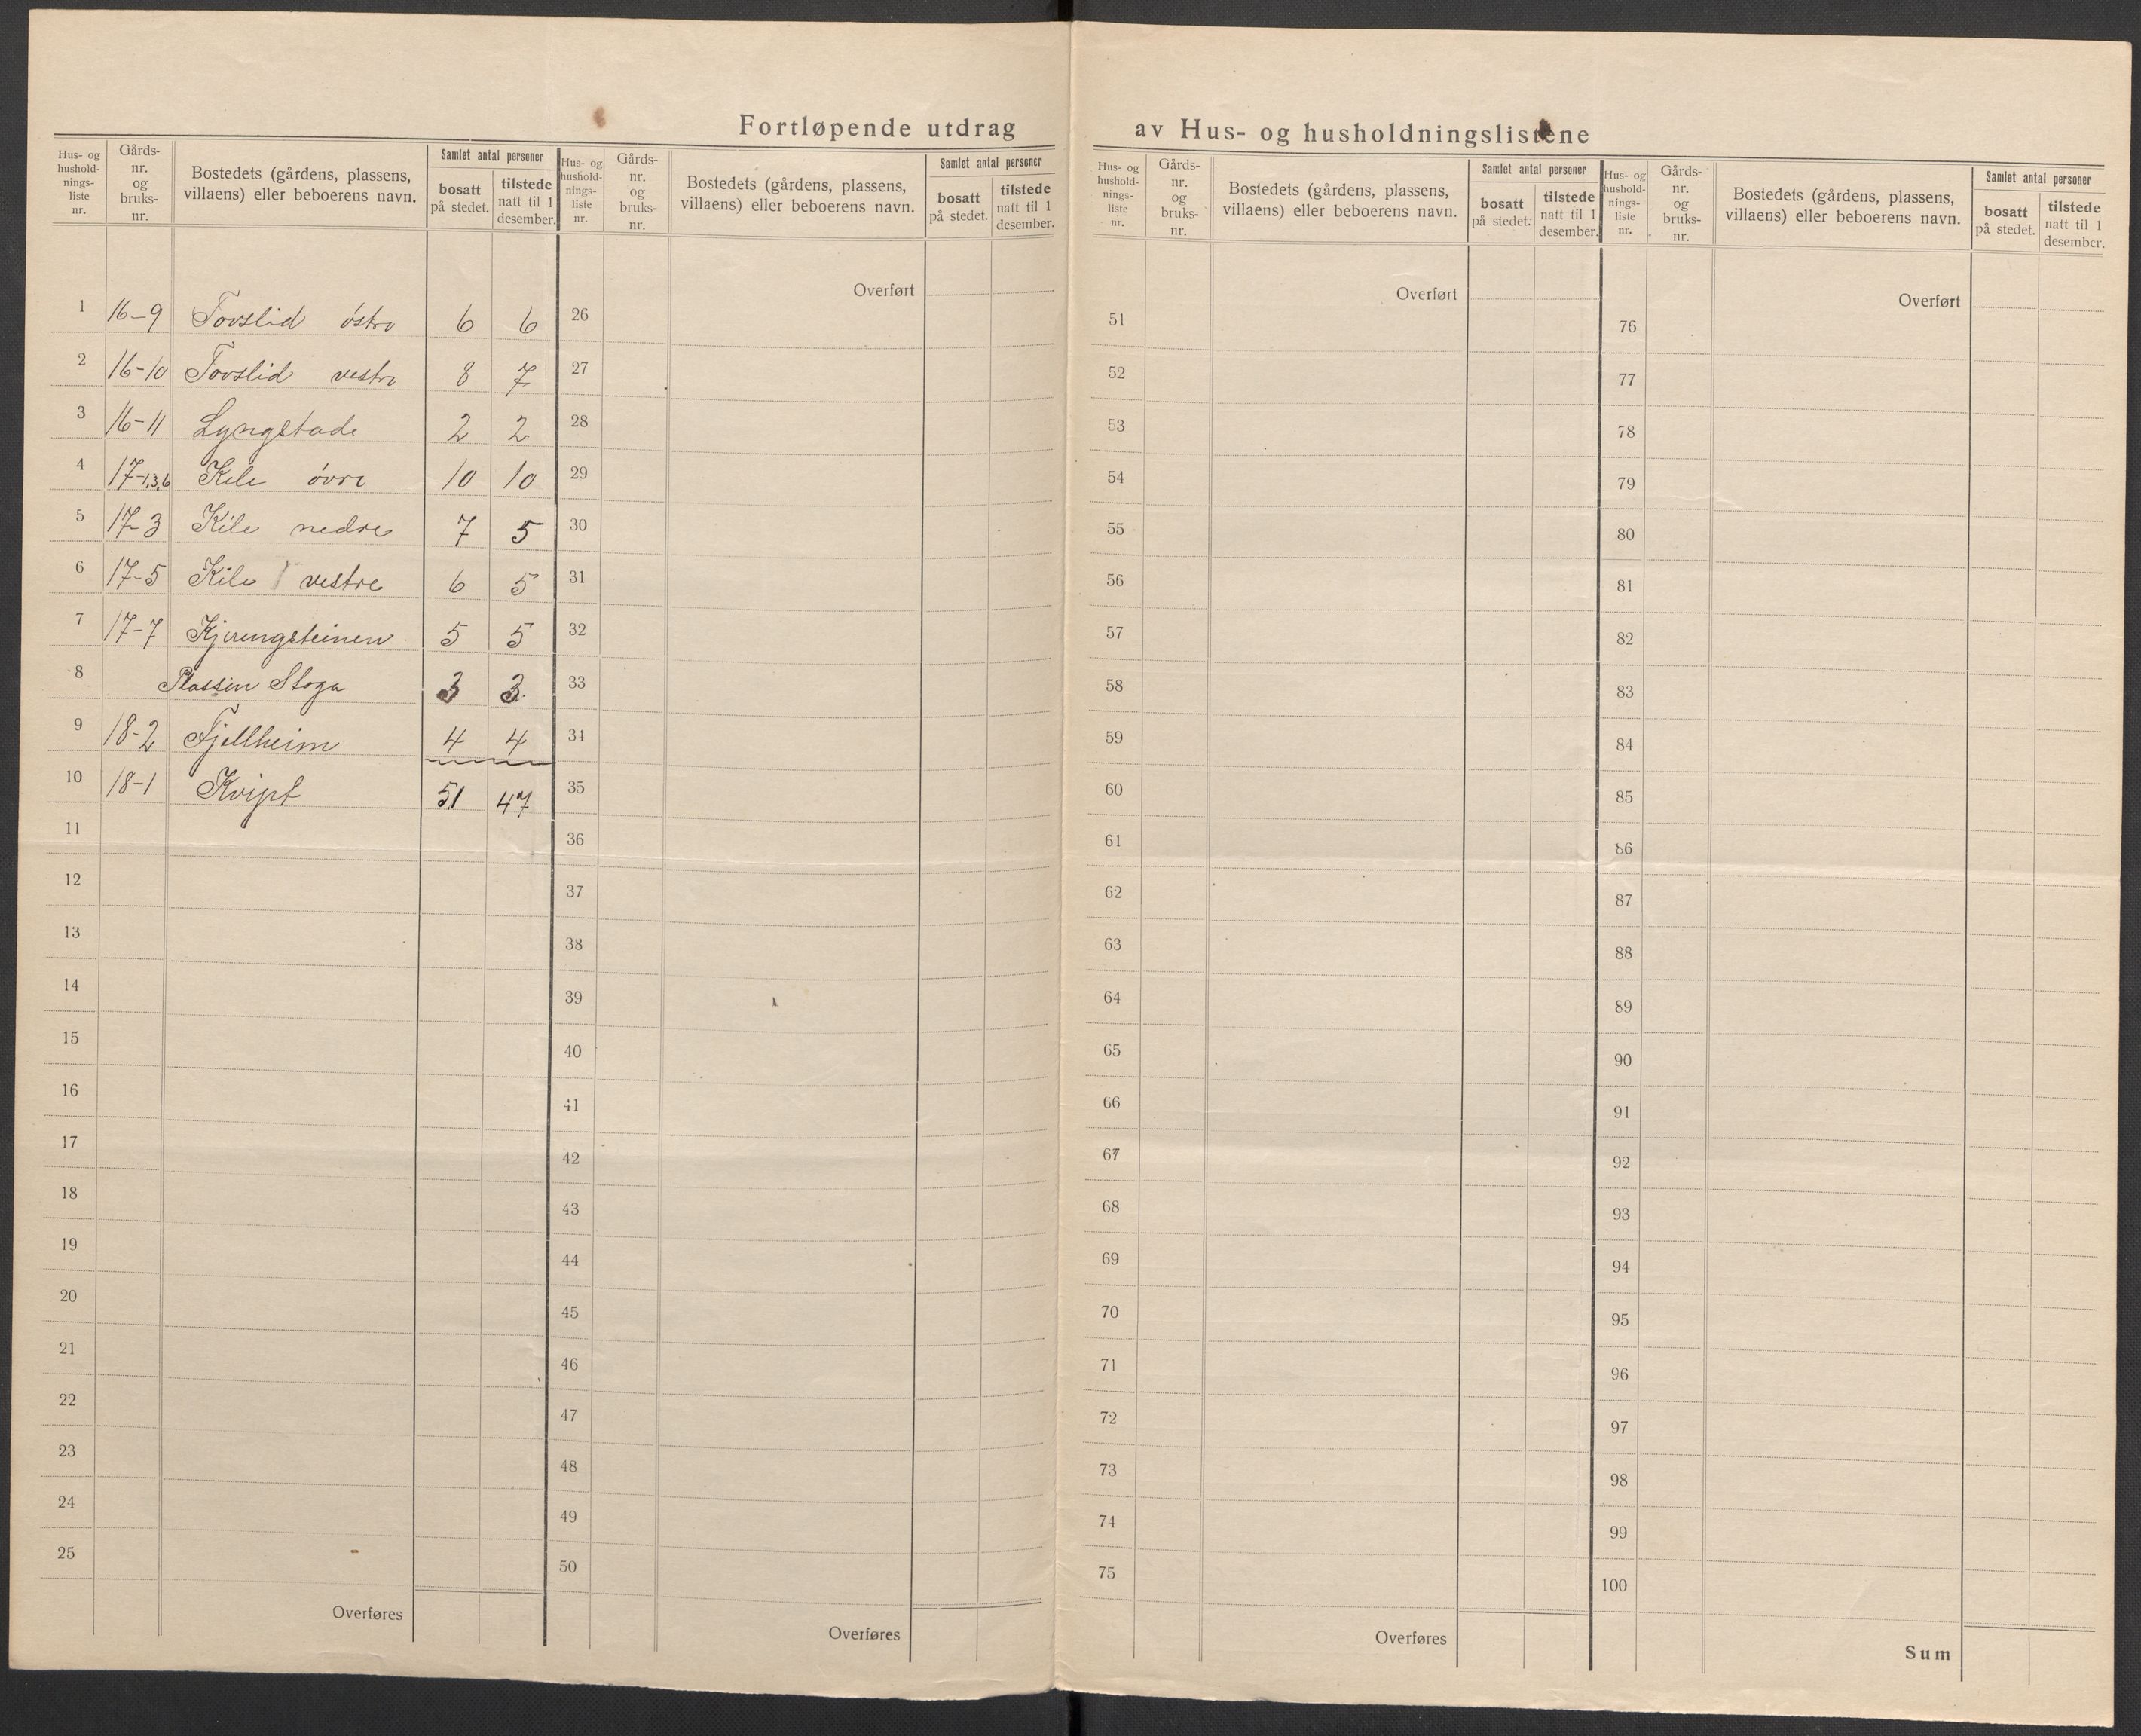 Fortløpende utdrag av Hus- og husholdningslistene
Hus- og hushold- nings- liste nr. | Gårds- nr. og bruks- nr. | Bostedets (gårdens, plassens, villaens) eller beboerens navn. | Samlet antal personer | bosatt på stedet. | tilstede natt til 1 desember.
1 16-9 Tovslid østre 6 6
2 16-10 Tovslid vestre 8 7
3 16-11 Lyngstade 2 2
4 17-1,3,6 Kile øvre 10 10
5 17-3 Kile nedre 7 5
6 17-5 Kile vestre 6 5
7 17-7 Kjerringsteinen 5 5
8 Plassen Stoga 3 3
9 18-2 Fjellheim 4 4
10 18-1 51 47
11
12
13
14
15
16
17
18
19
20
21
22
23
24
25
Overføres
Hus- og hushold- nings- liste nr. | Gårds- nr. og bruks- nr. | Bostedets (gårdens, plassens, villaens) eller beboerens navn. | Samlet antal personer | bosatt på stedet. | tilstede natt til 1 desember.
Overført
26
27
28
29
30
31
32
33
34
35
36
37
38
39
40
41
42
43
44
45
46
47
48
49
50
Overføres
Hus- og hushold- nings- liste nr. | Gårds- nr. og bruks- nr. | Bostedets (gårdens, plassens, villaens) eller beboerens navn. | Samlet antal personer | bosatt på stedet. | tilstede natt til 1 desember.
Overført
51
52
53
54
55
56
57
58
59
60
61
62
63
64
65
66
67
68
69
70
71
72
73
74
75
Overføres
Hus- og hushold- nings- liste nr. | Gårds- nr. og bruks- nr. | Bostedets (gårdens, plassens, villaens) eller beboerens navn. | Samlet antal personer | bosatt på stedet. | tilstede natt til 1 desember.
Overført
76
77
78
79
80
81
82
83
84
85
86
87
88
89
90
91
92
93
94
95
96
97
98
99
100
Sum